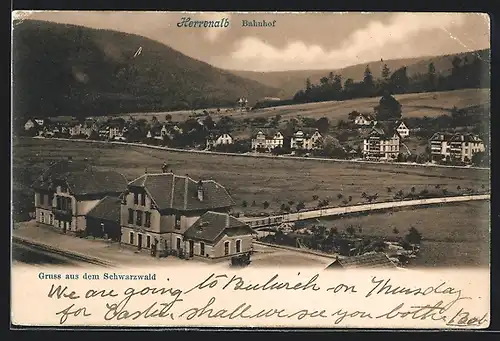 Herrenalb Bahnhof
Gruss aus dem Schwarzwald
We are going to Zurich on Thursday
for Easter, shall we see you both? Bob.